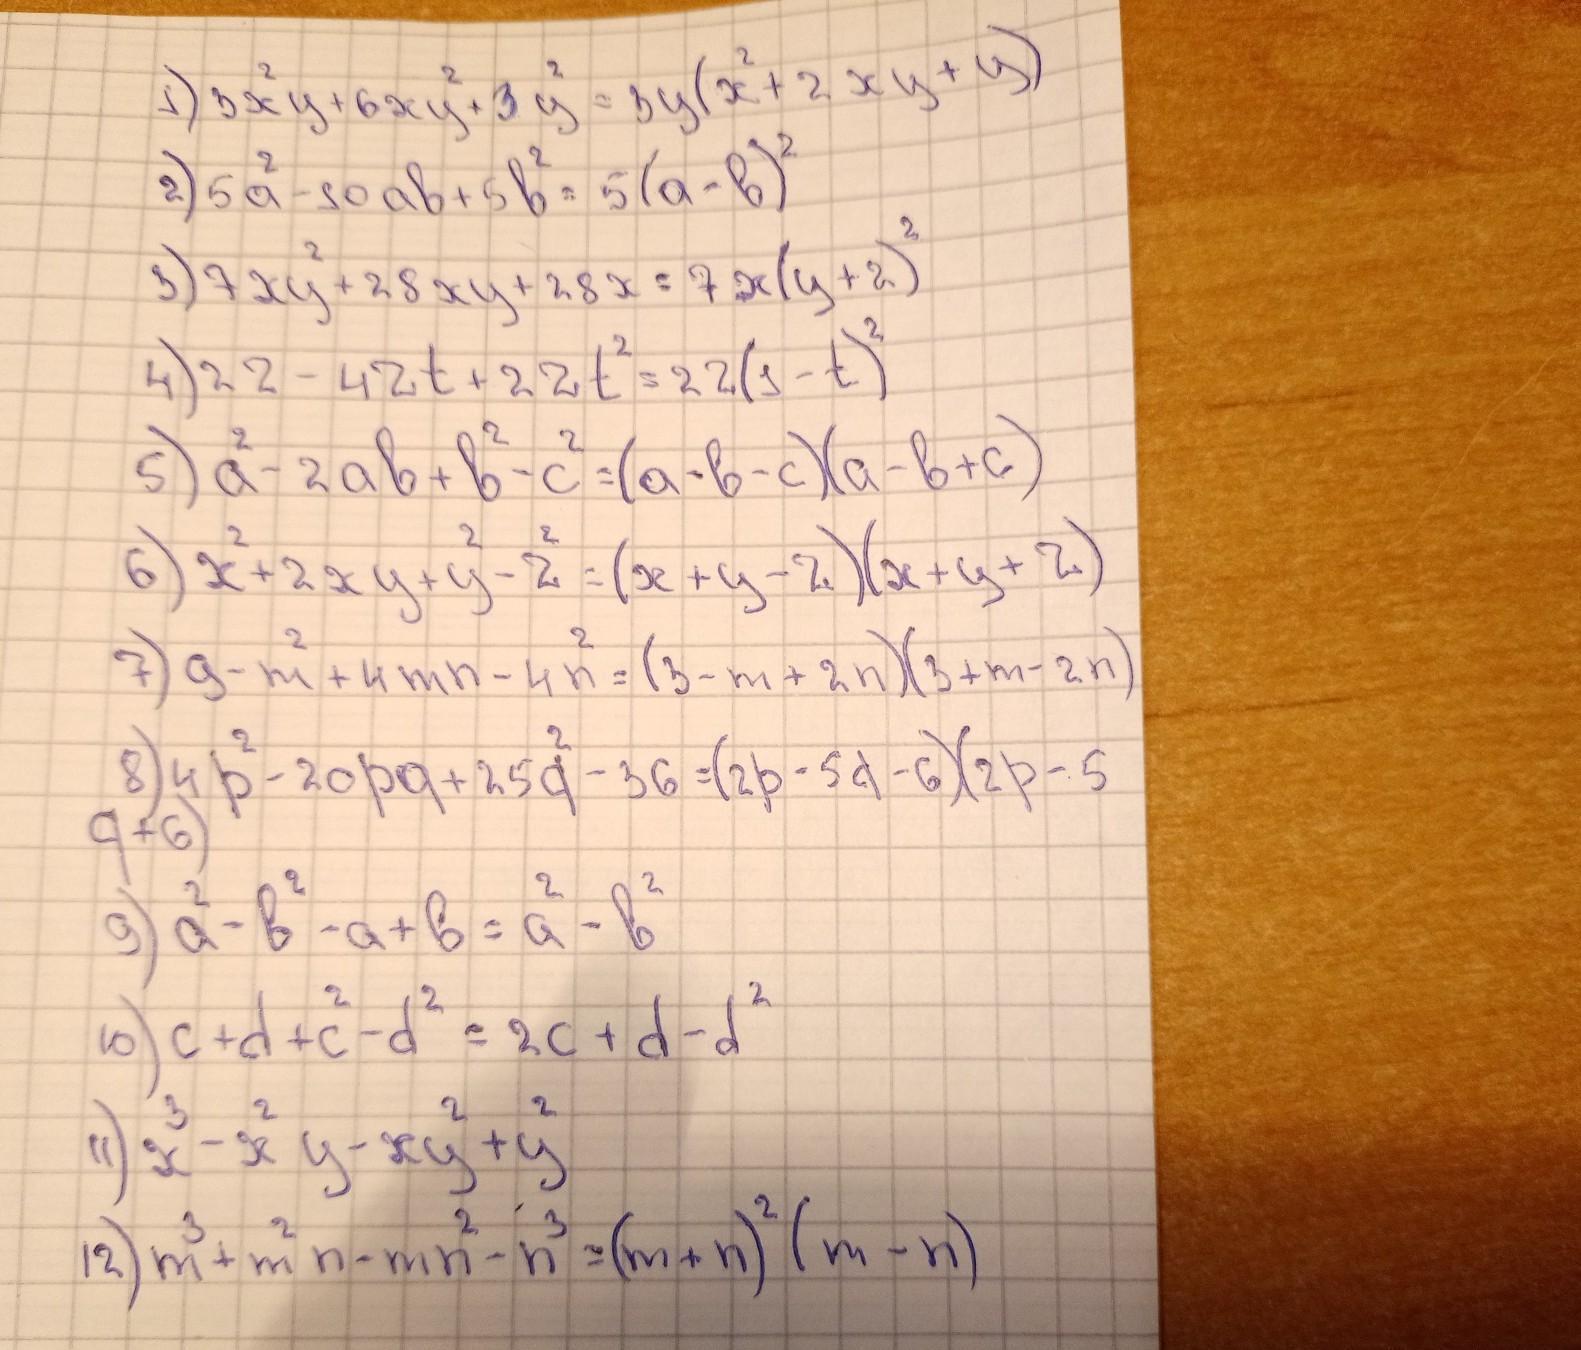 1) 3x²y+6xy²+3y²=3y(x²+2xy+y)
2) 5a²-10ab+5b²=5(a-b)²
3) 7xy²+28xy+28x=7x(y+2)²
4) 2z-4zt+2zt²=2z(1-t)²
5) a²-2ab+b²-c²=(a-b-c)(a-b+c)
6) x²+2xy+y²-z²=(x+y-z)(x+y+z)
7) 9-m²+4mn-4n²=(3-m+2n)(3+m-2n)
8) 4p²-20pq+25q²-36=(2p-5q-6)(2p-5
q+6)
9) a²-b²-a+b=a²-b²
10) c+d+c²-d²=2c+d-d²
11) x³-x²y-xy²+y²
12) m³+m²n-mn²-n³=(m+n)²(m-n)